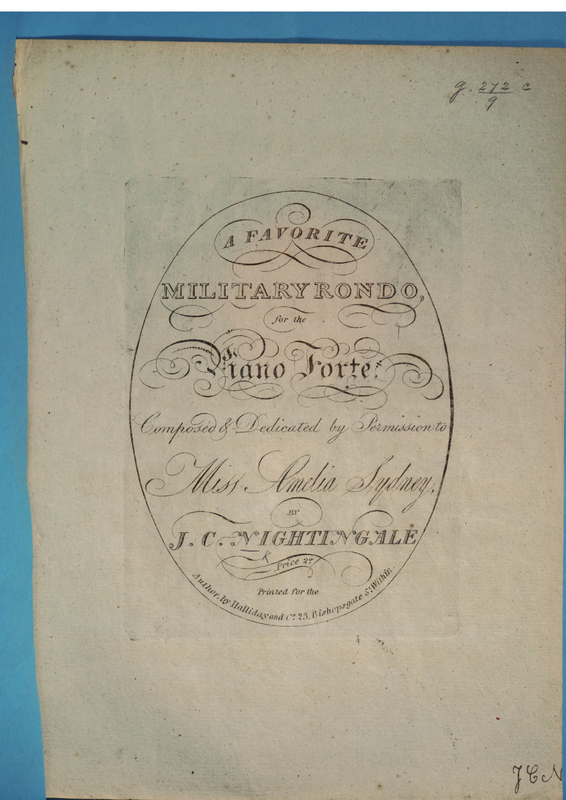 g. 272 c
9
A FAVORITE
MILITARY RONDO,
for the
Piano Forte.
Composed & Dedicated by Permission to
Miss Amelia Sydney,
BY
J. C. NIGHTINGALE
Price 2s
Printed for the
Author, by Halliday and Co. 23, Bishopsgate St. Within.
J C N